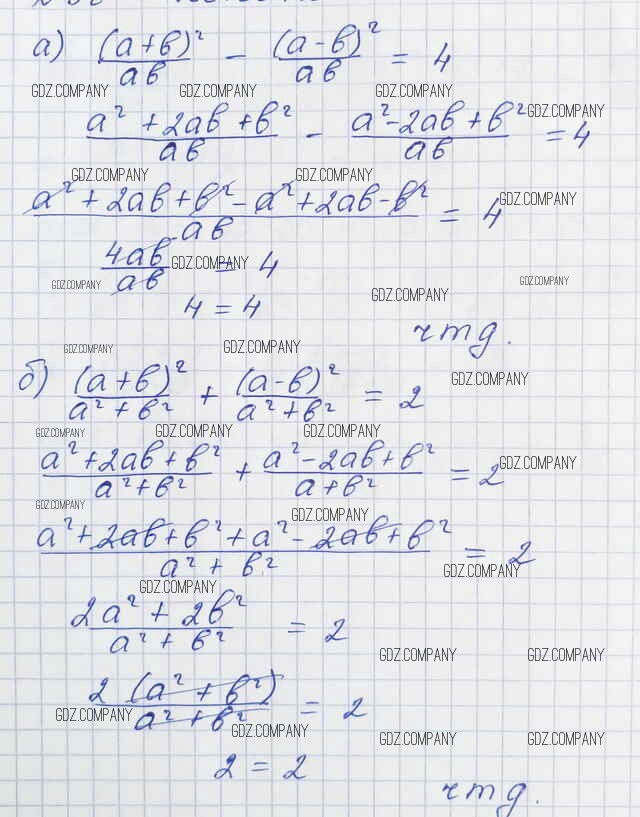 а) (a+b)²/ab - (a-b)²/ab = 4
GDZ.COMPANY GDZ.COMPANY GDZ.COMPANY
(a² + 2ab + b²)/ab - (a² - 2ab + b²)/ab = 4
GDZ.COMPANY
GDZ.COMPANY GDZ.COMPANY
(a² + 2ab + b² - a² + 2ab - b²)/ab = 4
GDZ.COMPANY
4ab/ab = 4
GDZ.COMPANY GDZ.COMPANY GDZ.COMPANY GDZ.COMPANY
4 = 4
чтд.
GDZ.COMPANY GDZ.COMPANY
б) (a+b)²/(a² + b²) + (a-b)²/(a² + b²) = 2
GDZ.COMPANY
GDZ.COMPANY GDZ.COMPANY GDZ.COMPANY
(a² + 2ab + b²)/(a² + b²) + (a² - 2ab + b²)/(a + b²) = 2
GDZ.COMPANY
GDZ.COMPANY GDZ.COMPANY
(a² + 2ab + b² + a² - 2ab + b²)/(a² + b²) = 2
GDZ.COMPANY
GDZ.COMPANY
(2a² + 2b²)/(a² + b²) = 2
GDZ.COMPANY GDZ.COMPANY
2(a² + b²)/(a² + b²) = 2
GDZ.COMPANY
GDZ.COMPANY GDZ.COMPANY GDZ.COMPANY
2 = 2
чтд.